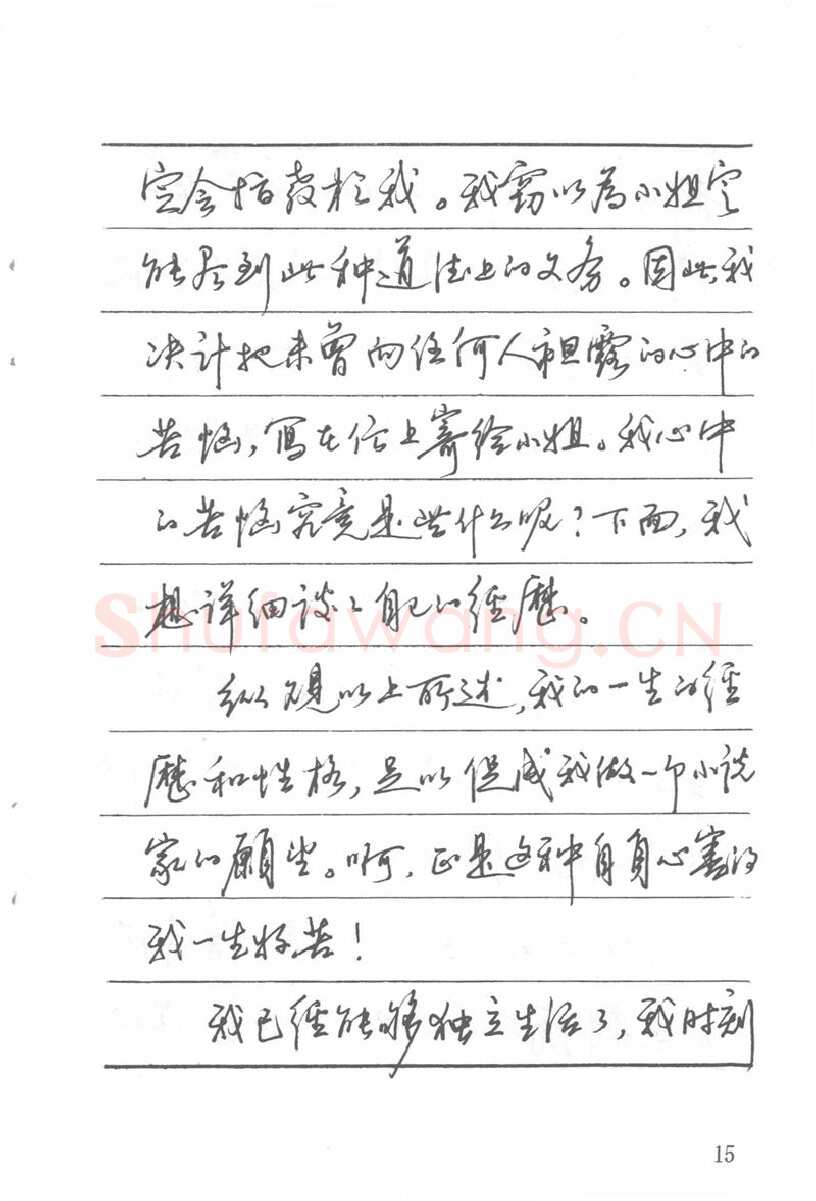 定会指教於我。我窃以為小姐定
能尽到此种道德上的义务。因此,我
决计把未曾向任何人袒露的心中的
苦恼,寫在信上寄给小姐。我心中
的苦恼究竟是些什么呢?下面,我
想详细谈谈自己的經歷。
纵观以上所述,我的一生的經
歷和性格,足以促成我做一个小说
家的願望。啊,正是这种自負心害的
我一生好苦!
我已經能够独立生活了,我时刻
Shufawang.CN
15